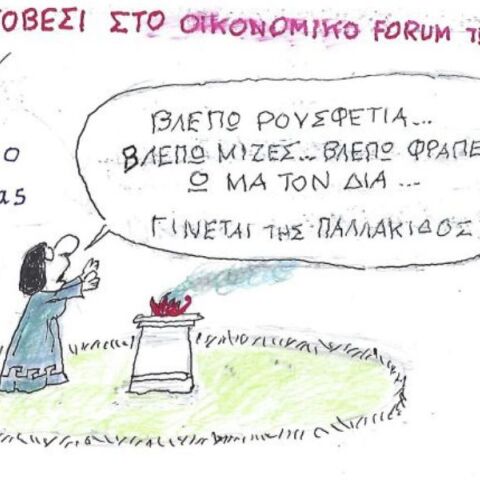 ΣΤΟ ΟΙΚΟΝΟΜΙΚΟ FORUM
ΒΛΕΠΩ ΡΟΥΣΦΕΤΙΑ...
ΒΛΕΠΩ ΜΙΖΕΣ... ΒΛΕΠΩ ΦΡΑΠΕ
Ο
Ω ΜΑ ΤΟΝ ΔΙΑ...
ας
ΓΙΝΕΤΑΙ ΤΗς ΠΑΛΛΑΚΙΔΟΣ